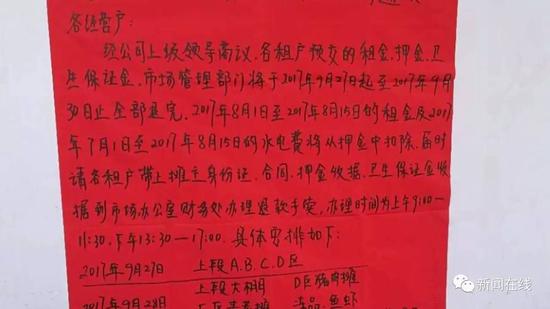 各经营户：
经公司上级领导商议，各租户预交的租金、押金、卫
生保证金、市场管理部门将于2017年9月27日起至2017年9月
30日止全部退完。2017年8月1日至2017年8月15日的租金及2017
年7月1日至2017年8月15日的水电费将从押金中扣除。届时
请各租户带上摊主身份证、合同、押金收据、卫生保证金收
据到市场办公室财务处办理退款手续，办理时间为上午9:00—
11:30.下午13:30—17:00.具体安排如下：
2017年9月27日 上段A.B.C.D区
上段大棚 D区猪肉摊
2017年9月28日 鱼虾
新闻在线